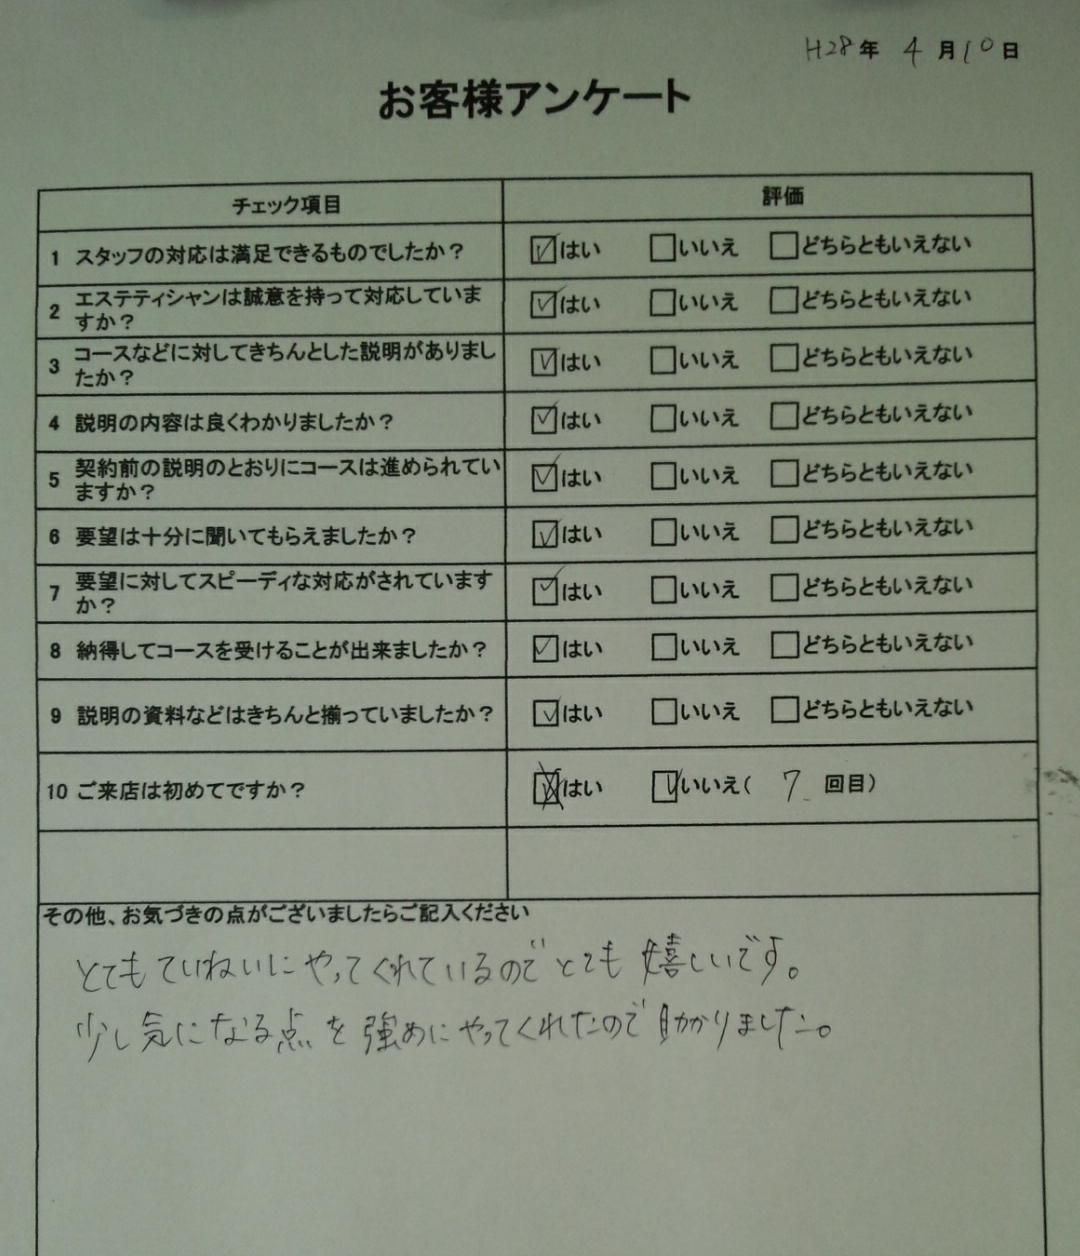 H28年 4月10日
お客様アンケート
チェック項目 評価
1 スタッフの対応は満足できるものでしたか? ☑はい □いいえ □どちらともいえない
2 エステティシャンは誠意を持って対応していま
すか? ☑はい □いいえ □どちらともいえない
3 コースなどに対してきちんとした説明がありまし
たか? ☑はい □いいえ □どちらともいえない
4 説明の内容は良くわかりましたか? ☑はい □いいえ □どちらともいえない
5 契約前の説明のとおりにコースは進められてい
ますか? ☑はい □いいえ □どちらともいえない
6 要望は十分に聞いてもらえましたか? ☑はい □いいえ □どちらともいえない
7 要望に対してスピーディな対応がされています
か? ☑はい □いいえ □どちらともいえない
8 納得してコースを受けることが出来ましたか? ☑はい □いいえ □どちらともいえない
9 説明の資料などはきちんと揃っていましたか? ☑はい □いいえ □どちらともいえない
10 ご来店は初めてですか? ☒はい ☑いいえ( 7 回目)
その他、お気づきの点がございましたらご記入ください
とてもていねいにやってくれているのでとても嬉しいです。
少し気になる点を強めにやってくれたので助かりました。